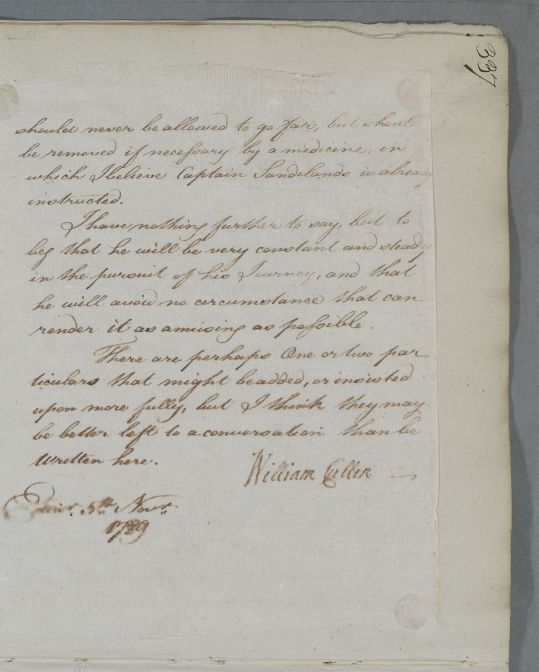 should never be allowed to go far, but should
be removed if necessary by a medicine, in
which I believe Captain Sandilands is already
instructed.
I have nothing further to say, but to
beg that he will be very constant and steady
in the pursuit of his Journey, and that
he will avoid no circumstance that can
render it as amusing as possible.
There are perhaps One or two par
ticulars that might be added, or insisted
upon more fully, but I think they may
be better left to a conversation than be
written here.
William Cullen
Edinr. 5th Novr.
1789